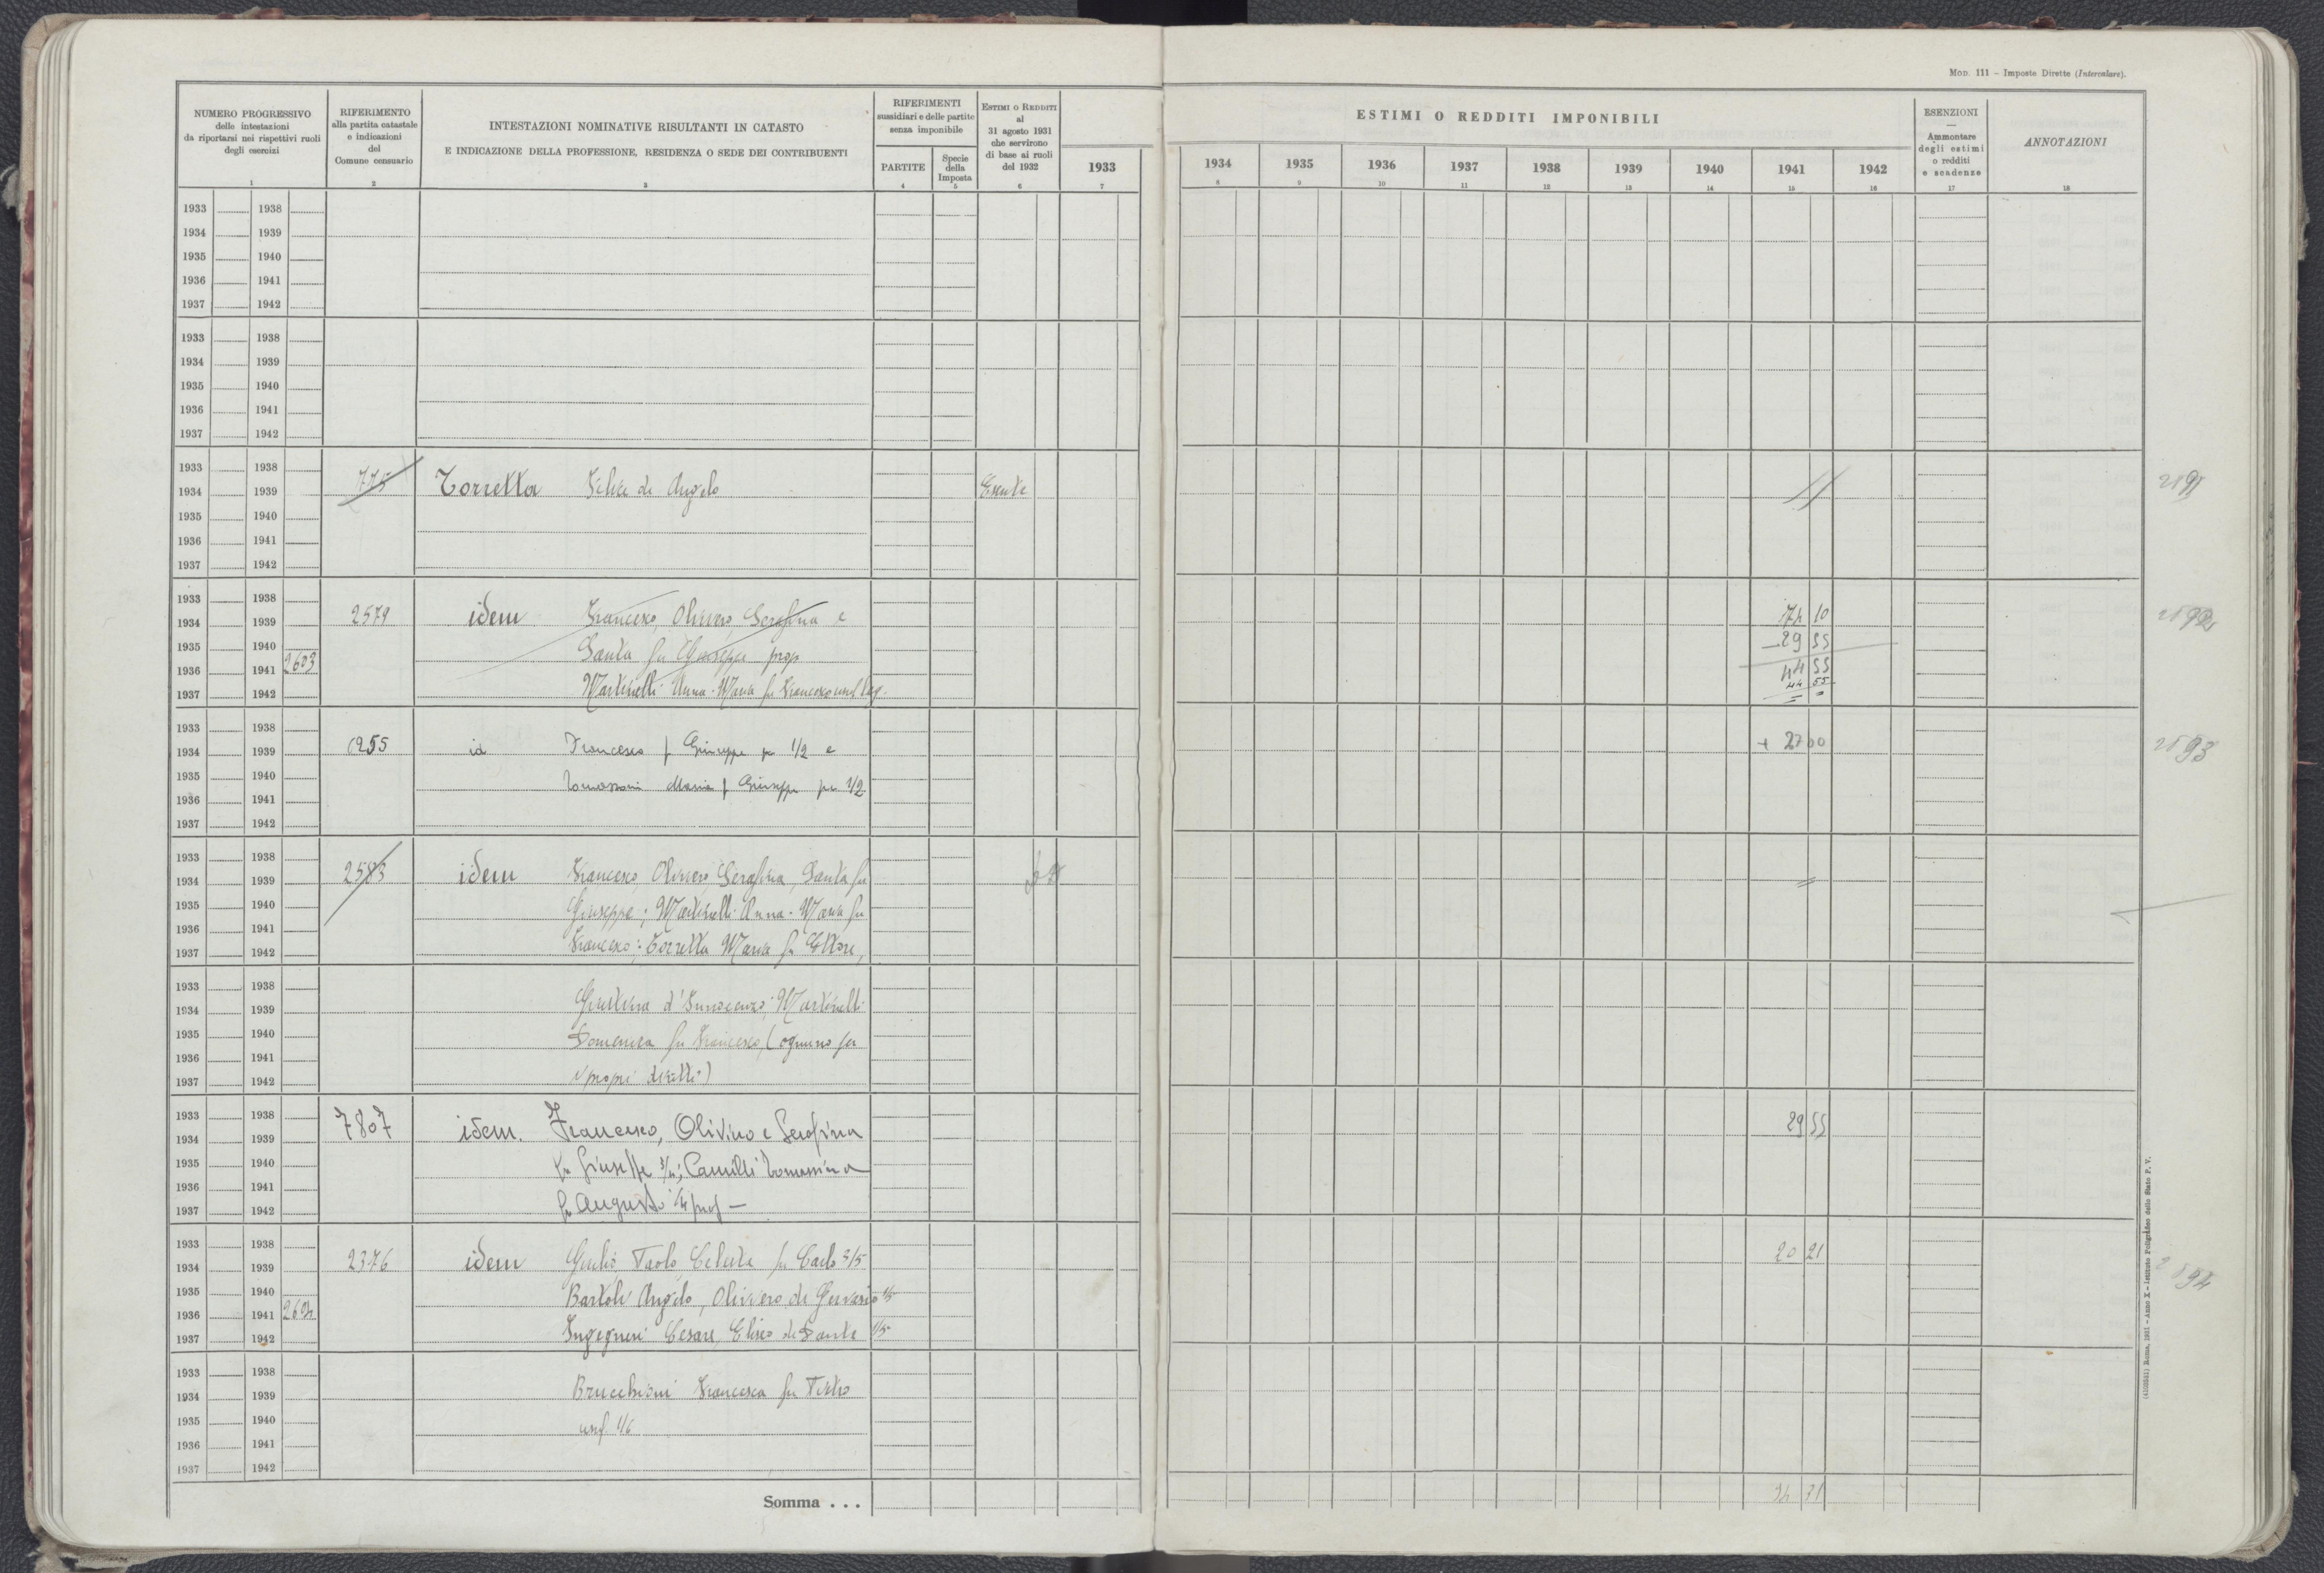 MOD. 111 – Imposte Dirette (Intercalare).
NUMERO PROGRESSIVO
delle intestazioni
da riportarsi nei rispettivi ruoli
degli esercizi
1
RIFERIMENTO
alla partita catastale
e indicazioni
del
Comune censuario
2
INTESTAZIONI NOMINATIVE RISULTANTI IN CATASTO
E INDICAZIONE DELLA PROFESSIONE, RESIDENZA O SEDE DEI CONTRIBUENTI
3
RIFERIMENTI
sussidiari e delle partite
senza imponibile
PARTITE
4
Specie
della
Imposta
5
ESTIMI O REDDITI
al
31 agosto 1931
che servirono
di base ai ruoli
del 1932
6
1933
7
ESTIMI O REDDITI IMPONIBILI
1934 1935 1936 1937 1938 1939 1940 1941 1942
8 9 10 11 12 13 14 15 16
ESENZIONI
—
Ammontare
degli estimi
o redditi
e scadenze
17
ANNOTAZIONI
18
1933 1938
1934 1939
1935 1940
1936 1941
1937 1942
1933 1938
1934 1939
1935 1940
1936 1941
1937 1942
1933 1938
1934 1939 775 Torretta Felice di Angelo Esente
1935 1940
1936 1941
1937 1942
1933 1938
1934 1939 2579 idem Francesco, Oliviero, Serafina e 74 10
1935 1940 Santa fu Giuseppe prop – 29 55
1936 1941 2603 44 55
1937 1942 Martinelli Anna-Maria fu Francesco usuf 44 55
1933 1938
1934 1939 id Francesco f Giuseppe per 1/2 e + 2700 2593
1935 1940
1936 1941 Tomassoni Maria f Giuseppe per 1/2
1937 1942
1933 1938
1934 1939 2583 idem Francesco, Olivero, Serafina, Santa fu
1935 1940 Giuseppe; Martinelli Anna-Maria fu
1936 1941
1937 1942 Francesco; Torretta Maria fu Ettore,
1933 1938
1934 1939 Giustina d'Innocenzo; Martinelli
1935 1940 Domenica fu Francesco, (ognuno per
1936 1941
1937 1942 i propri diritti)
1933 1938
1934 1939 7807 idem. Francesco, Olivino e Serafina 29 55
1935 1940 fu Giuseppe 3/4; Camilli Tomassina
1936 1941
1937 1942 fu Augusto 1/4 prop –
1933 1938
1934 1939 2376 idem Giulio, Paolo, Celeste fu Carlo 3/5 20 21
1935 1940 Bartoli Angelo, Olivero di Gervasio 1/5
1936 1941 2604
1937 1942 Ingegneri Cesare, Eliseo di Sante 1/5
1933 1938
1934 1939 Brucchioni Francesca fu Pietro
1935 1940 usuf. 1/6
1936 1941
1937 1942
Somma . . .
(4103531) Roma, 1931 – Anno X – Istituto Poligrafico dello Stato P. V.